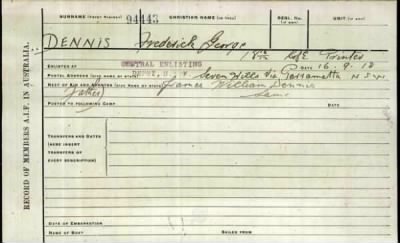 SURNAME (IN BLOCK LETTERS) 94443 CHRISTIAN NAME REGTL. NO. AGE
DENNIS Frederick George 18 7/12 C of E Printer
ENLISTED AT CENTRAL ENLISTING DEPOT, DATE 16.9.18
POSTAL ADDRESS (GIVE NAME OF STATE) Seven Hills via Parramatta N S W
NEXT OF KIN AND ADDRESS (GIVE NAME OF STATE) James William Dennis
(Father) Same
POSTED TO FOLLOWING CAMP
TRANSFERS AND DATES
(HERE INSERT
TRANSFERS OF
EVERY DESCRIPTION)
DATE OF EMBARKATION
NAME OF BOAT SAILED FROM
RECORD OF MEMBERS A.I.F. IN AUSTRALIA.